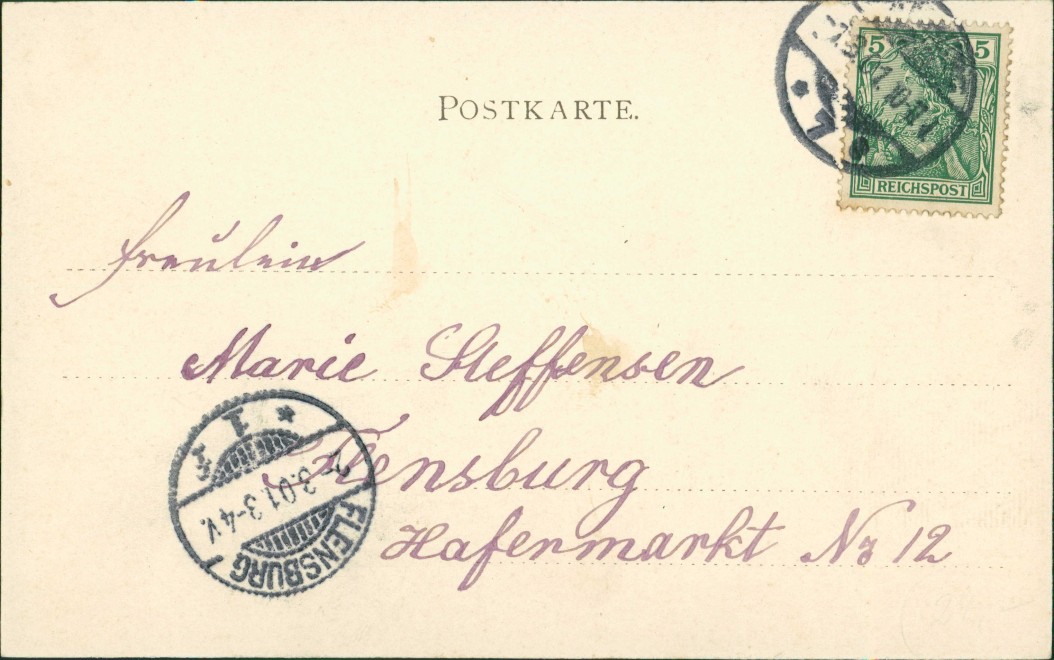 POSTKARTE.
5 5
REICHSPOST
Fräulein
Marie Steffensen
Flensburg
Hafermarkt No 12
3.01.3-4V.
FLENSBURG